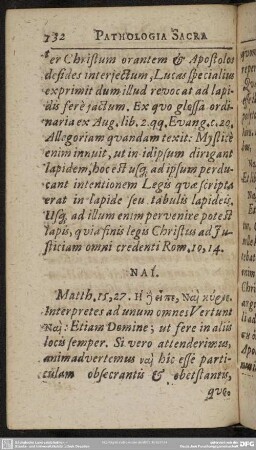 732 PATHOLOGIA SACRA
ter Christum orantem & Apostolos
desides interjectum, Lucas specialius
exprimit dum illud revocat ad lapi-
dis ferè jactum. Ex quo glossa ordi-
naria ex Aug. lib. 2. qq. Evang. c. 20.
Allegoriam quandam texit: Mysticè
enim innuit, ut in idipsum dirigant
lapidem, hoc est usq; ad ipsum perdu-
cant intentionem Legis quæ scripta
erat in lapide seu tabulis lapideis.
Usq; ad illum enim pervenire potest
lapis, quia finis legis Christus ad Ju-
sticiam omni credenti Rom. 10, 14.
ΝΑΙ.
Matth. 15, 27. Η ἢ εἶπε, Ναὶ κύριε.
Interpretes ad unum omnes Vertunt
Ναὶ: Etiam Domine; ut fere in aliis
locis semper. Si vero attenderimus,
animadvertemus ναὶ hic esse parti-
culam obsecrantis & obtestantis,
quo-